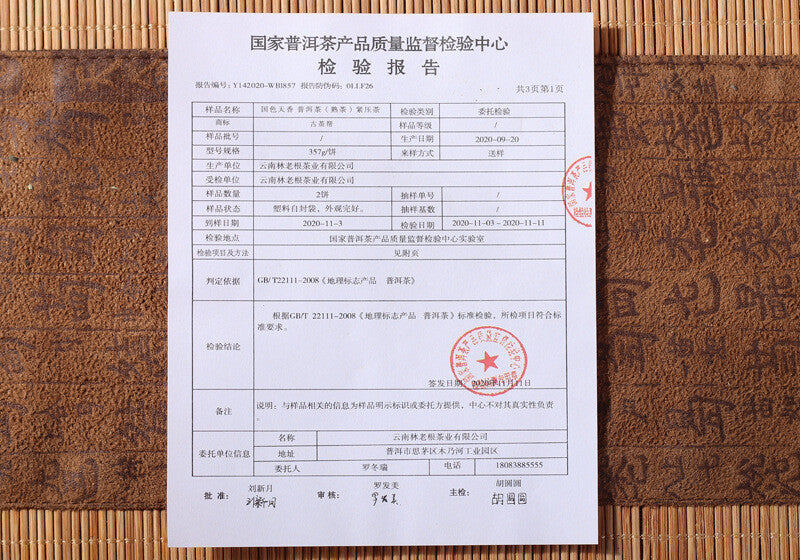 国家普洱茶产品质量监督检验中心
检 验 报 告
报告编号：Y142020-WB1857 报告防伪码：0LLF26
共3页第1页
样品名称 国色天香 普洱茶（熟茶）紧压茶 检验类别 委托检验
商标 古茶帮 样品等级 /
样品批号 / 生产日期 2020-09-20
型号规格 357g/饼 来样方式 送样
生产单位 云南林老根茶业有限公司
受检单位 云南林老根茶业有限公司
样品数量 2饼 抽样单号 /
样品状态 塑料自封袋，外观完好。 抽样基数 /
到样日期 2020-11-3 检验日期 2020-11-03～2020-11-11
检验地点 国家普洱茶产品质量监督检验中心实验室
检验项目及方法 见附页
判定依据 GB/T22111-2008《地理标志产品 普洱茶》
检验结论 根据GB/T 22111-2008《地理标志产品 普洱茶》标准检验，所检项目符合标
准要求。
签发日期：2020年11月11日
备注 说明：与样品相关的信息为样品明示标识或委托方提供，中心不对其真实性负责
。
委托单位信息 名称 云南林老根茶业有限公司
地址 普洱市思茅区木乃河工业园区
委托人 罗冬瑞 电话 18083885555
批准： 刘新月 审核： 罗发美 主检： 胡圆圆
刘新月 罗发美 胡圆圆